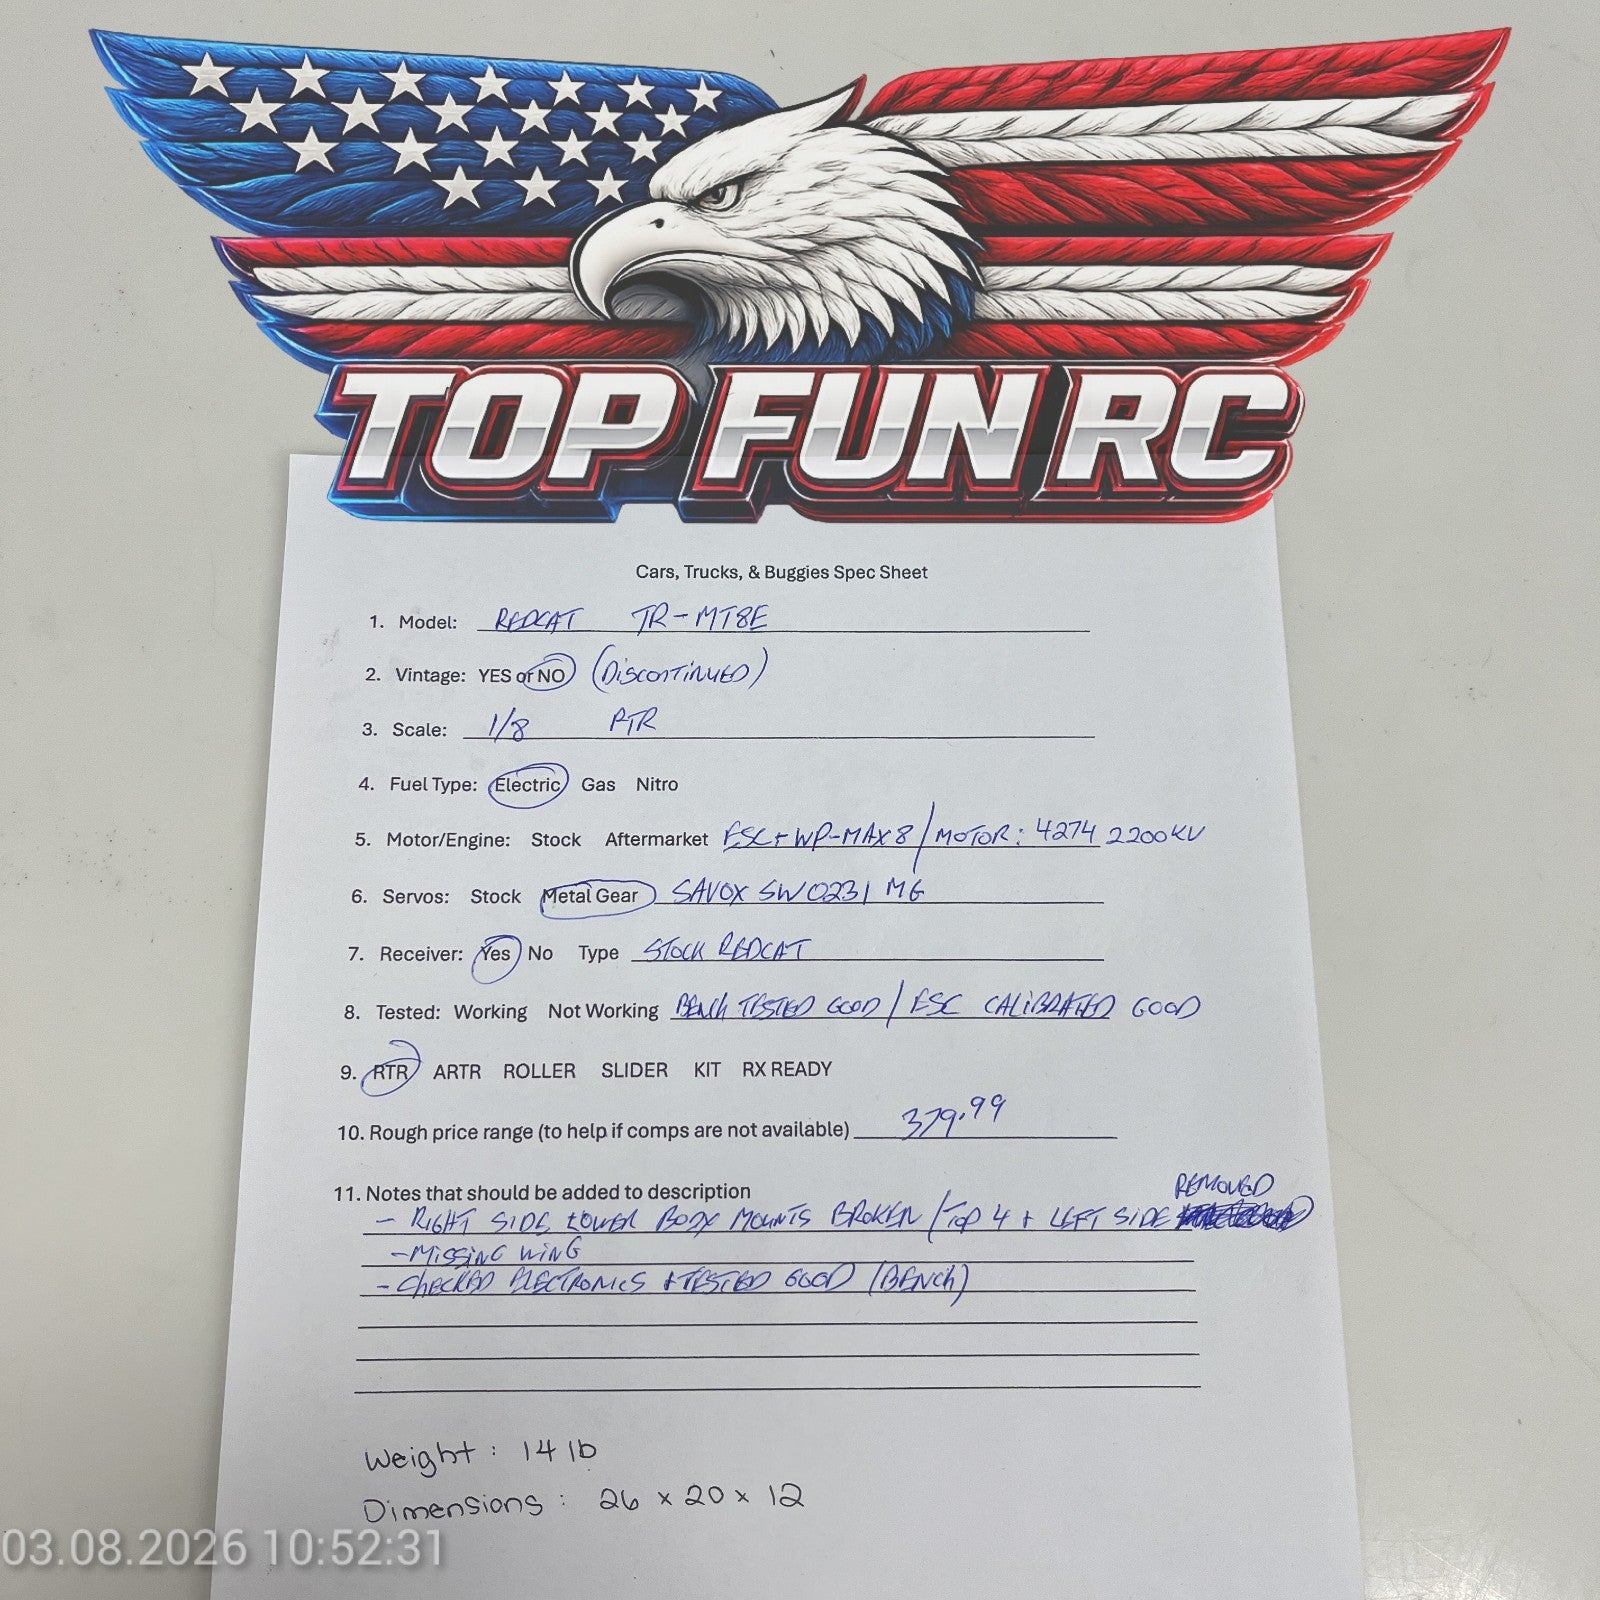 TOP FUN RC
Cars, Trucks, & Buggies Spec Sheet
1. Model: REDCAT TR-MT8E
2. Vintage: YES or NO (DISCONTINUED)
3. Scale: 1/8 RTR
4. Fuel Type: Electric Gas Nitro
5. Motor/Engine: Stock Aftermarket ESC + WP-MAX8 / MOTOR: 4274 2200KV
6. Servos: Stock Metal Gear SAVOX SW0231 MG
7. Receiver: Yes No Type STOCK REDCAT
8. Tested: Working Not Working BENCH TESTED GOOD / ESC CALIBRATED GOOD
9. RTR ARTR ROLLER SLIDER KIT RX READY
10. Rough price range (to help if comps are not available) 379.99
11. Notes that should be added to description
REMOVED
- RIGHT SIDE LOWER BODY MOUNTS BROKEN / TOP 4 + LEFT SIDE
- MISSING WING
- CHECKED ELECTRONICS + TESTED GOOD (BENCH)
Weight: 14 lb
Dimensions: 26 x 20 x 12
03.08.2026 10:52:31